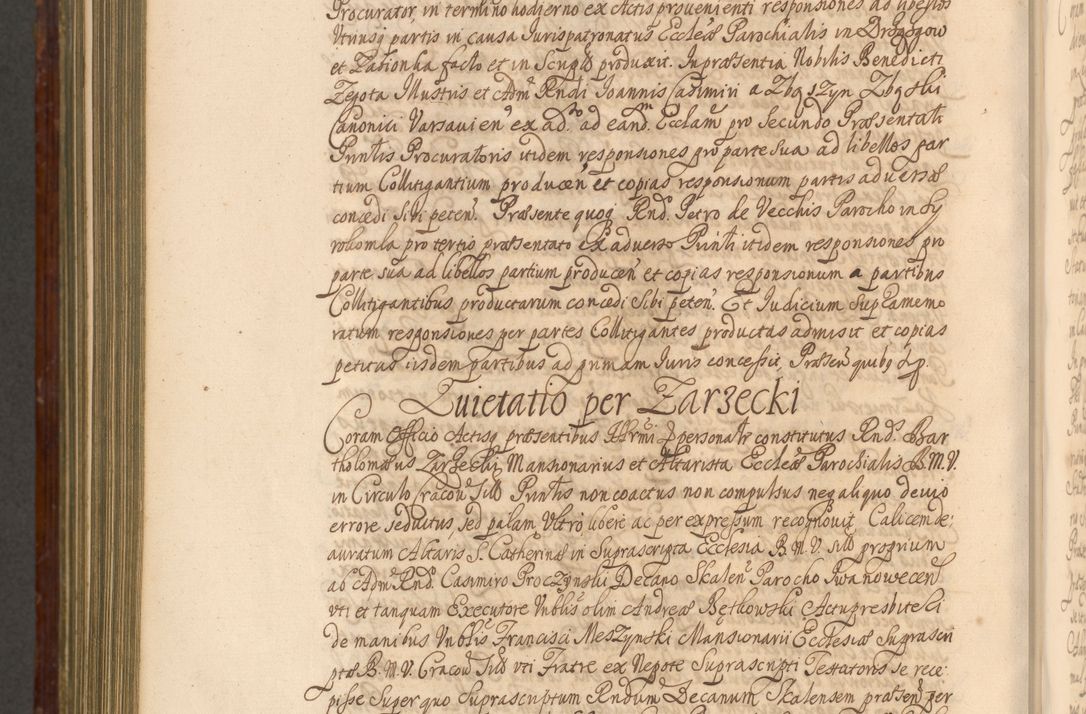 Procurator, in termino hodierno ex Actis provenienti responsiones ad libellos
Utriusq partis in causa Jurispatronatus Eccleæ Parochialis in Drogogow
et Zationka facto et in Scriptis produxit. In præsentia Nobilis Benedicti
Zegota Illustris et Adm Rndi Joannis Casimiri a Zbąszyn Zbąski
Canonici Varsavien ex ad.so ad eand. Ecclam pro secundo Præsentati
Prntis Procuratoris itidem responsiones pro parte sua ad libellos par
tium Collitigantium producen et copias responsionum partis adversæ
concedi sibi peten. Præsente quoq Rnd. Petro de Vecchis Parocho in Sy
rokomla pro tertio præsentato ex adverso Prnti itidem responsiones pro
parte sua ad libellos partium producen et copias responsionum a partibus
Collitigantibus productarum concedi sibi peten. Et Judicium supramemo
ratum responsiones per partes Collitigantes productas admisit et copias
petitas iisdem partibus ad primam Juris concessit, Præsen quibq &p.
Quietatio per Zarzecki
Coram Officio Actisq præsentibus personalr constitutus Rnds. Bar
tholomæus Zarzecki Mansionarius et Altarista Eccleæ Parochialis B.M.V.
in Circulo Cracov Sito Prntis non coactus non compulsus neq aliquo devio
errore seductus, sed palam Ultro, libere ac per expressum recognovit Calicem de;
auratum Altaris S. Catherinæ in Suprascripta Ecclesia B.M.V. sito proprium
ab Adm Rnd. Casimiro Proczynski Decano Skalen Parocho Iwanowecen
uti et tanquam Executore Unblis olim Andreæ Bętkowski Actupresbiteri
de manibus Unblis Francisci Meszynski Mansionarii Ecclesiæ Suprascri
ptæ B.M.V. Cracov Sito uti Fratre ex Nepote Suprascripti Testatoris se rece:
pisse Super quo Suprascriptum Rndum Decanum Skalensem præsen per